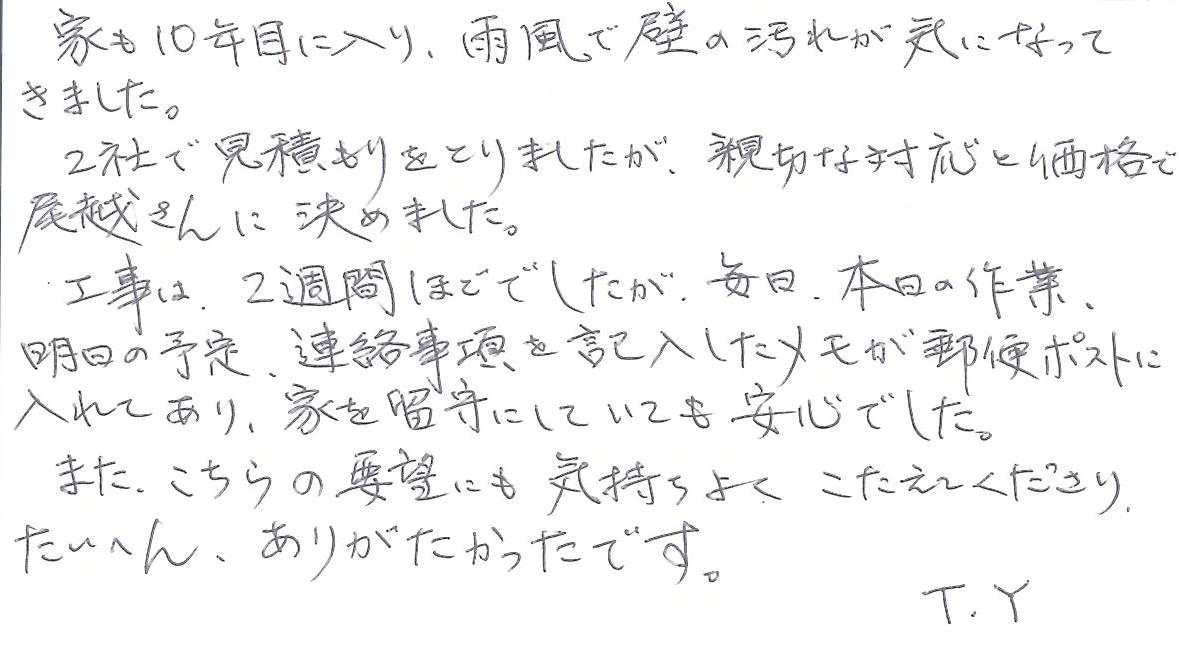 家も10年目に入り、雨風で壁の汚れが気になって
きました。
2社で見積もりをとりましたが、親切な対応と価格で
尾越さんに決めました。
工事は、2週間ほどでしたが、毎日、本日の作業、
明日の予定、連絡事項を記入したメモが郵便ポストに
入れてあり、家を留守にしていても安心でした。
また、こちらの要望にも気持ちよく こたえてくださり、
たいへん、ありがたかったです。
T.Y